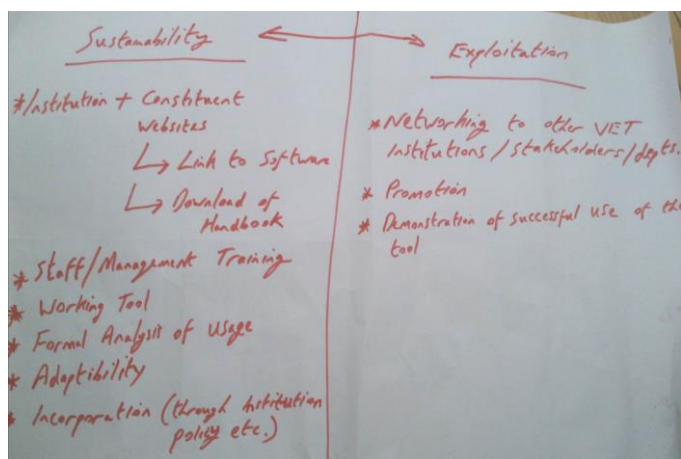 Sustainability
*Institution + Constituent
Websites
↳ Link to Software
↳ Download of
Handbook
* Staff/Management Training
* Working Tool
* Formal Analysis of Usage
* Adaptibility
* Incorporation (through Institution
policy etc.)
Exploitation
*Networking to other VET
Institutions/Stakeholders/depts.
* Promotion
* Demonstration of successful use of the
tool